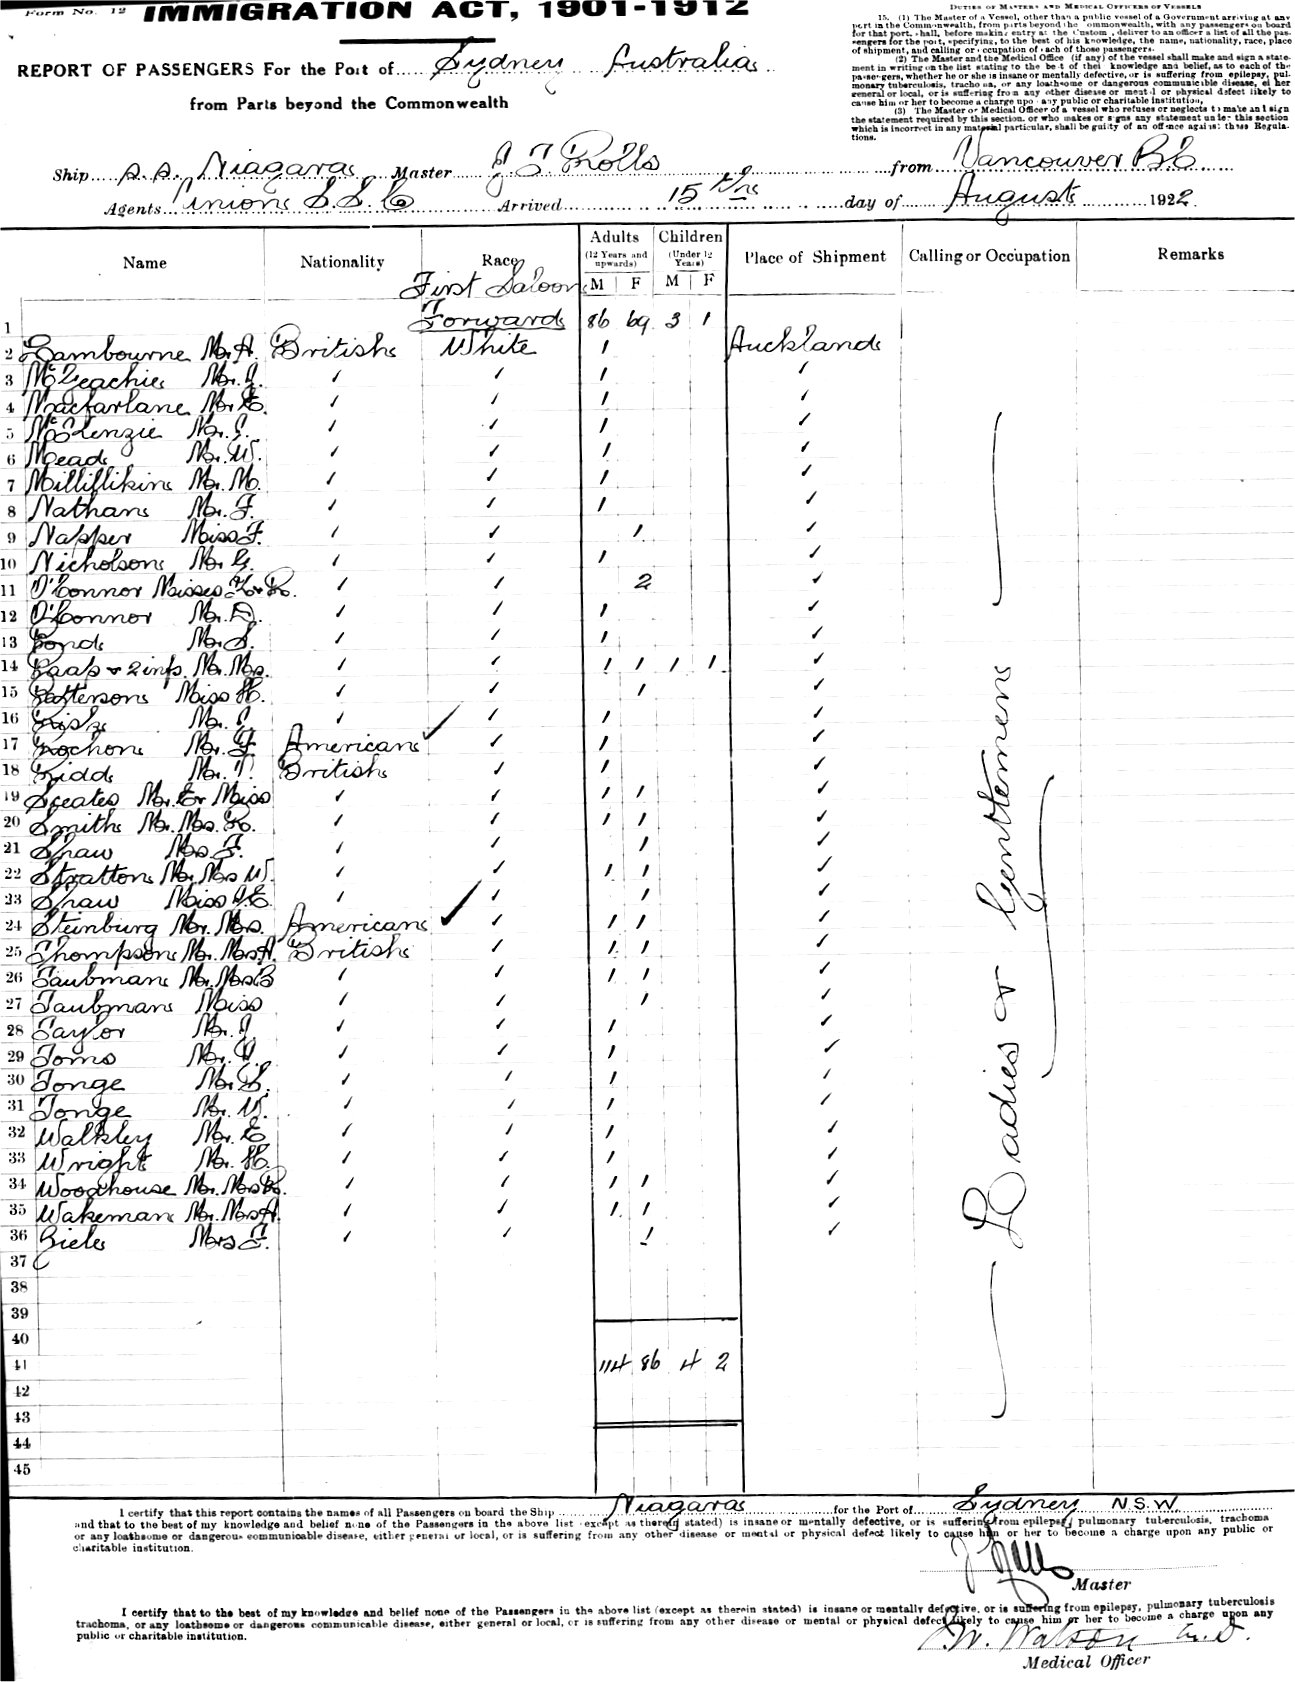 Form No. 12
IMMIGRATION ACT, 1901-1912
REPORT OF PASSENGERS For the Port of Sydney Australia
from Parts beyond the Commonwealth
DUTIES OF MASTERS AND MEDICAL OFFICERS OF VESSELS
15. (1) The Master of a Vessel, other than a public vessel of a Government arriving at any
port in the Commonwealth, from parts beyond the Commonwealth, with any passengers on board
for that port, shall, before making entry at the Customs, deliver to an officer a list of all the pas-
sengers for the port, specifying, to the best of his knowledge, the name, nationality, race, place
of shipment, and calling or occupation of each of those passengers.
(2) The Master and the Medical Office (if any) of the vessel shall make and sign a state-
ment in writing on the list stating to the best of their knowledge and belief, as to each of the
passengers, whether he or she is insane or mentally defective, or is suffering from epilepsy, pul-
monary tuberculosis, trachoma, or any loathsome or dangerous communicable disease, either
general or local, or is suffering from any other disease or mental or physical defect likely to
cause him or her to become a charge upon any public or charitable institution,
(3) The Master or Medical Officer of a vessel who refuses or neglects to make and sign
the statement required by this section, or who makes or signs any statement under this section
which is incorrect in any material particular, shall be guilty of an offence against these Regula-
tions.
Ship s.s. Niagara Master J T Rolls from Vancouver B.C
Agents Union S.S. Co Arrived 15th day of August 1922
Name Nationality Race Adults (12 Years and upwards) M F Children (Under 12 Years) M F Place of Shipment Calling or Occupation Remarks
First Saloon
1 Forward 86 69 3 1
2 Lambourne Mr. A. British White 1 Auckland
3 McGeachie Mr. J. ✓ ✓ 1 ✓
4 Macfarlane Mr. E. ✓ ✓ 1 ✓
5 McKenzie Mr. J. ✓ ✓ 1 ✓
6 Mead Mr. W. ✓ ✓ 1 ✓
7 Milliflikin Mr. M. ✓ ✓ 1 ✓
8 Nathan Mr. F. ✓ ✓ 1 ✓
9 Napper Miss F. ✓ ✓ 1 ✓
10 Nicholson Mr. G. ✓ ✓ 1 ✓
11 O'Connor Misses ✓ ✓ 2 ✓
12 O'Connor Mr. D. ✓ ✓ 1 ✓
13 Pond Mr. S. ✓ ✓ 1 ✓
14 Paap & 2 infs. Mr. Mrs. ✓ ✓ 1 1 1 1 ✓
15 Patterson Miss H. ✓ ✓ 1 ✓
16 Mr. ✓ ✓ 1 ✓
17 Rochon Mr. F. American ✓ ✓ 1 ✓
18 Kidd Mr. T. British ✓ 1 ✓
19 Sceates Mr. E & Miss ✓ ✓ 1 1 ✓
20 Smith Mr. Mrs. R. ✓ ✓ 1 1 ✓
21 Shaw Mrs. F. ✓ ✓ 1 ✓
22 Stratton Mr. Mrs W. ✓ ✓ 1 1 ✓
23 Shaw Miss J.E. ✓ ✓ 1 ✓
24 Steinburg Mr. Mrs. American ✓ ✓ 1 1 ✓
25 Thompson Mr. Mrs A. British ✓ 1 1 ✓
26 Taubman Mr. Mrs B ✓ ✓ 1 1 ✓
27 Taubman Miss ✓ ✓ 1 ✓
28 Taylor Mr. J. ✓ ✓ 1 ✓
29 Toms Mr. ✓ ✓ 1 ✓
30 Tonge Mr. S. ✓ ✓ 1 ✓
31 Tonge Mr. W. ✓ ✓ 1 ✓
32 Walkley Mr. E ✓ ✓ 1 ✓
33 Wright Mr. H. ✓ ✓ 1 ✓
34 Woodhouse Mr. Mrs R. ✓ ✓ 1 1 ✓
35 Wakeman Mr. Mrs A. ✓ ✓ 1 1 ✓
36 Giele Mrs F. ✓ ✓ 1 ✓
Ladies & Genttemen
37
38
39
40
41 114 86 4 2
42
43
44
45
I certify that this report contains the names of all Passengers on board the Ship Niagara for the Port of Sydney N.S.W.
and that to the best of my knowledge and belief none of the Passengers in the above list (except as therein stated) is insane or mentally defective, or is suffering from epilepsy, pulmonary tuberculosis, trachoma
or any loathsome or dangerous communicable disease, either general or local, or is suffering from any other disease or mental or physical defect likely to cause him or her to become a charge upon any public or
charitable institution.
Master
I certify that to the best of my knowledge and belief none of the Passengers in the above list (except as therein stated) is insane or mentally defective, or is suffering from epilepsy, pulmonary tuberculosis
trachoma, or any loathsome or dangerous communicable disease, either general or local, or is suffering from any other disease or mental or physical defect likely to cause him or her to become a charge upon any
public or charitable institution.
W. Watson M.D.
Medical Officer